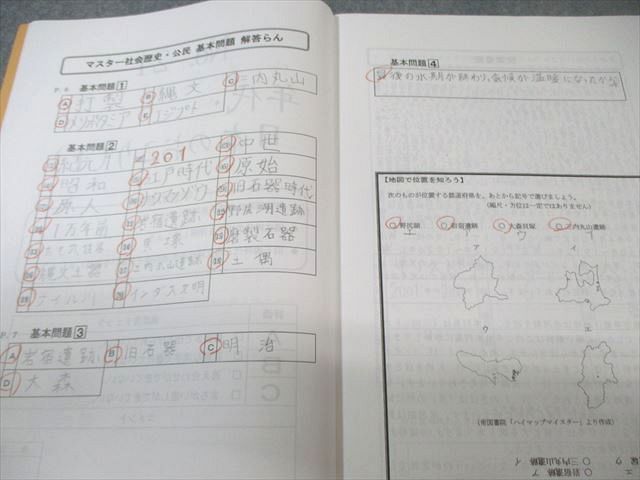 マスター社会歴史・公民 基本問題 解答らん
P.6 基本問題1
A 打製 B 縄文 C 三内丸山
D メソポタミア E エジプト
基本問題2
紀元前 201 中世
昭和 江戸時代 原始
原人 ナウマンゾウ 旧石器時代
1万年前 岩宿遺跡 野尻湖遺跡
貝塚 磨製石器
縄文土器 三内丸山遺跡 土偶
ナイル川 インダス文明
P.7 基本問題3
A 岩宿遺跡 B 旧石器 C 明治
D 大森
基本問題4
後の氷期が終わり、気候が温暖になったから
【地図で位置を知ろう】
次のものが位置する都道府県を、あとから記号で選びましょう。
(縮尺・方位は一定ではありません)
○野尻湖 ○岩宿遺跡 ○大森貝塚 ○三内丸山遺跡
エ ア ウ イ
ア イ
ウ エ
(帝国書院「ハイマップマイスター」より作成)
○三内丸山遺跡 イ
○岩宿遺跡 ア